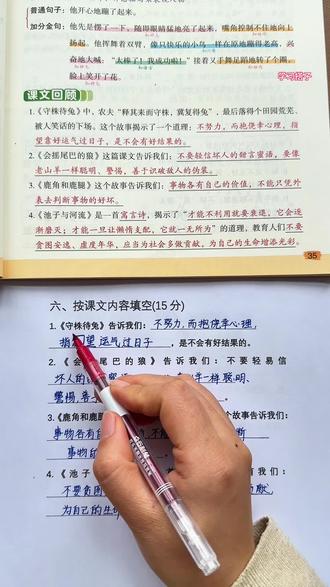 普通句子：他开心地蹦了起来。
加分金句：他先是愣了一下，随即眼睛猛地亮了起来，嘴角控制不住地向上
扬起。他挥舞着双臂，像只快乐的小鸟一样在原地蹦得老高，兴
奋地大喊：“太棒了！我成功啦！”接着又手舞足蹈地转了个圈，
脸上笑开了花。
学习搭子
课文回顾
1.《守株待兔》中，农夫“释其耒而守株，冀复得兔”，最后落得个田园荒芜、
被人笑话的下场。这个故事揭示了一个道理：不努力，而抱侥幸心理，指
望靠好运气过日子，是不会有好结果的。
2.《会摇尾巴的狼》这篇课文告诉我们：不要轻信坏人的甜言蜜语，要像
老山羊一样聪明、警惕，善于识破坏人的伪装。
3.《鹿角和鹿腿》这个故事告诉我们：事物各有自己的价值，不能只凭外
表去判断事物的好坏。
4.《池子与河流》是一首寓言诗，揭示了“才能不利用就要衰退，它会逐
渐磨灭；才能一旦让懒惰支配，它就一无所为”的道理，教育人们不要
贪图安逸、虚度年华，应当为社会多做贡献，为自己的生命增添光彩。
35
六、按课文内容填空(15分)
1.《守株待兔》告诉我们：不努力，而抱侥幸心理，
指望运气过日子，是不会有好结果的。
2.《会摇尾巴的狼》告诉我们：不要轻信
坏人的 一样聪明、
警惕，善
3.《鹿角和鹿腿 个故事告诉我们：
事物各有自 断
事物
4.《池子 们：
不要贪图 献，
为自己的生